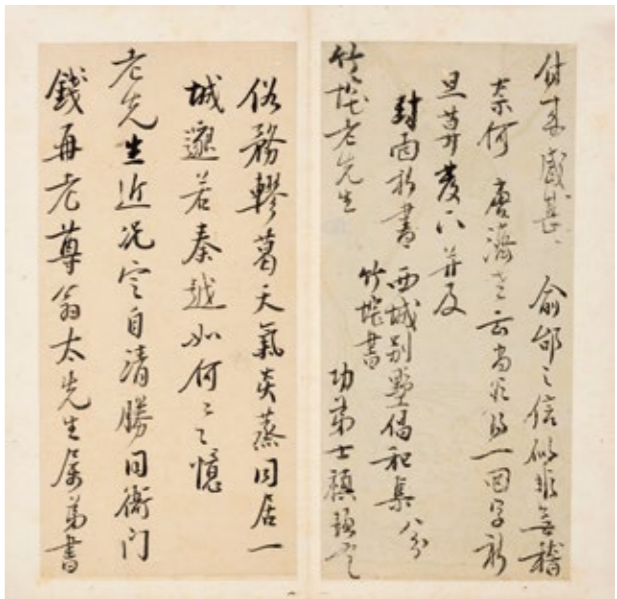 付来感甚、俞邰之信似非無稽
奈何 唐濟老云尚欲得一回字祈
旦莫發下并及
封面祈書 西城别墅倡和集 八分
竹垞書
竹垞老先生 功弟士禛頓首
俗務轇葛天氣炎蒸同居一
城邈若秦越如何〻〻憶
老先生近况定自清勝同衙门
錢再老尊翁太先生屬弟書